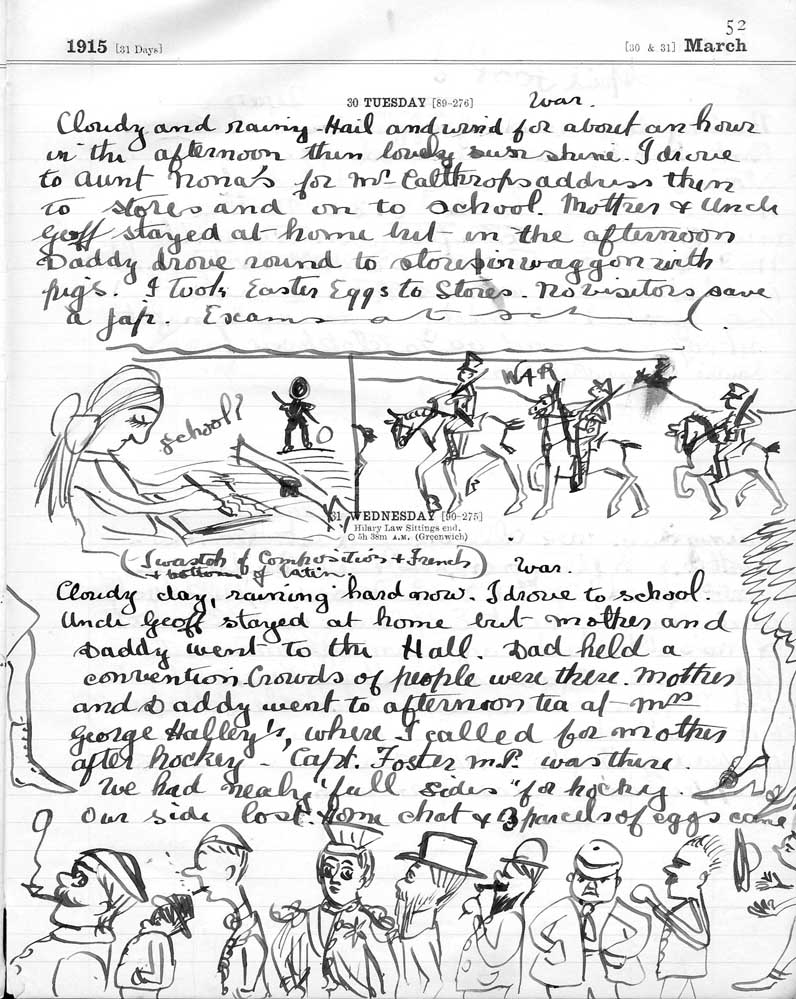 52
1915 [31 Days] [30 & 31] March
30 TUESDAY [89-276] War.
Cloudy and rainy. Hail and wind for about an hour
in the afternoon then lovely sunshine. I drove
to Aunt Nona's for Mr Calthrop's address then
to stores and on to school. Mother & Uncle
Geoff stayed at home but in the afternoon
Daddy drove round to stores in waggon with
pigs. I took Easter Eggs to Stores. No visitors save
a Jap. Exams at sch
school?
WAR
31 WEDNESDAY [90-275]
Hilary Law Sittings end.
○ 5h 38m A.M. (Greenwich)
(I was top of Composition & French)
& bottom of Latin. War.
Cloudy day, raining hard now. I drove to school.
Uncle Geoff stayed at home but mother and
Daddy went to the Hall. Dad held a
convention. Crowds of people were there. Mother
and Daddy went to afternoon tea at Mrs
George Halley's, where I called for mother
after hockey - Capt. Foster M.P. was there.
We had nearly "full sides" for hockey.
Our side lost. Home chat & 3 parcels of eggs came